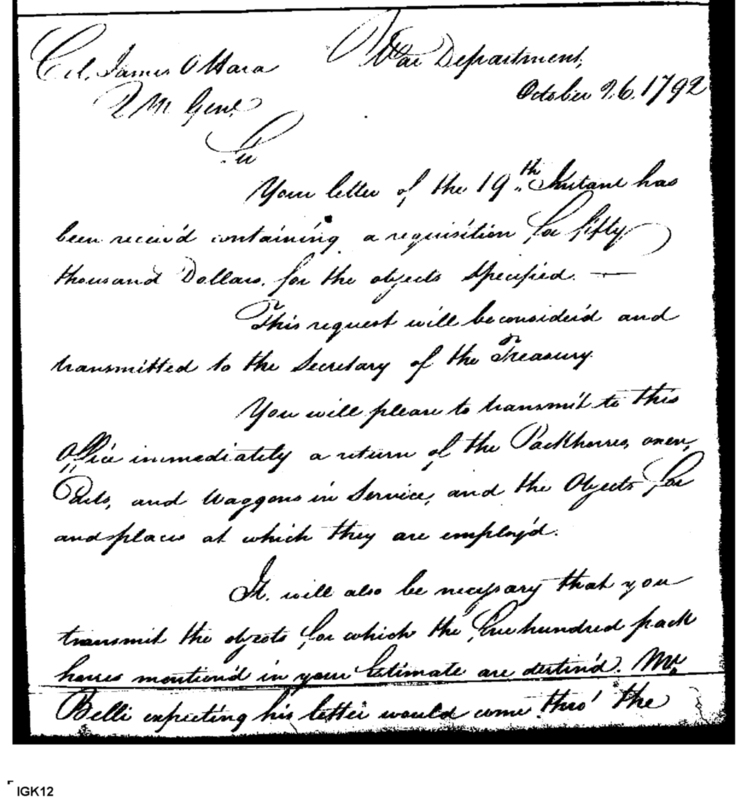 Col. James OHara
War Department,
October 26. 1792
Q M Genl.
Sir
Your letter of the 19th. Instant has
been receiv'd containing a requisition for fifty
thousand Dollars, for the objects specified. —
This request will be consider'd and
transmitted to the Secretary of the Treasury.
You will please to transmit to this
Office immediately a return of the Packhorses, oxen,
and Waggons in Service, and the Objects for
and places at which they are employ'd.
It will also be necessary that you
transmit the objects for which the hundred pack
horses mention'd in your Estimate are destin'd. Mr.
Belli expecting his letter would come thro' the
IGK12